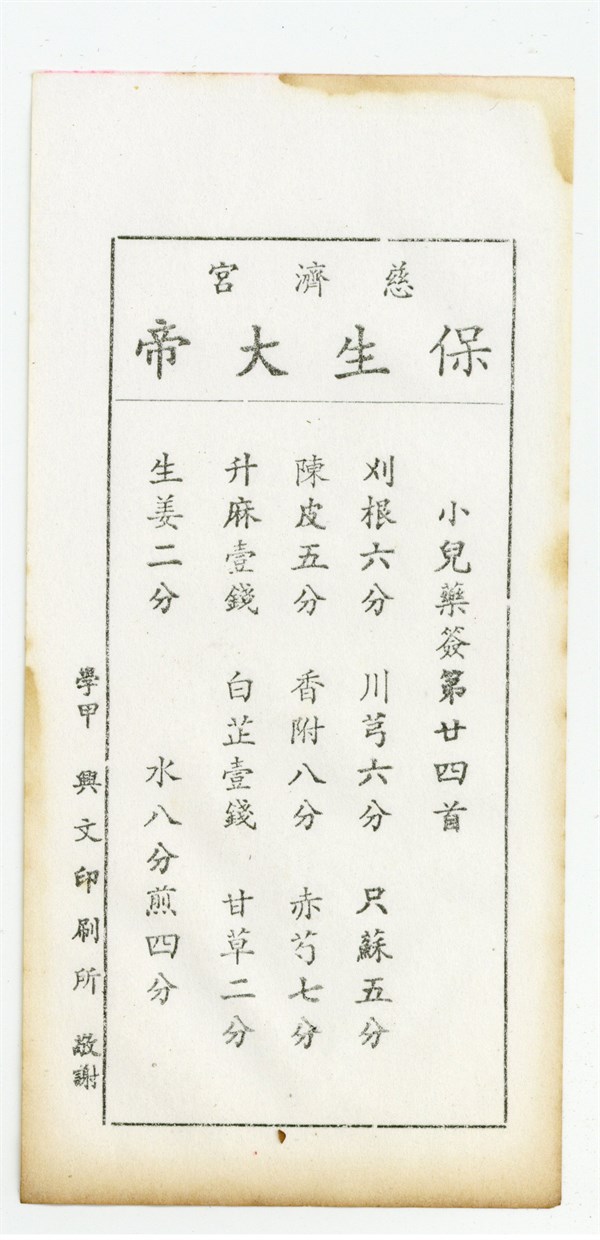 慈濟宮
保生大帝
小兒藥簽第廿四首
刈根六分 川芎六分 只蘇五分
陳皮五分 香附八分 赤芍七分
升麻壹錢 白芷壹錢 甘草二分
生姜二分 水八分煎四分
學甲 興文印刷所 敬謝